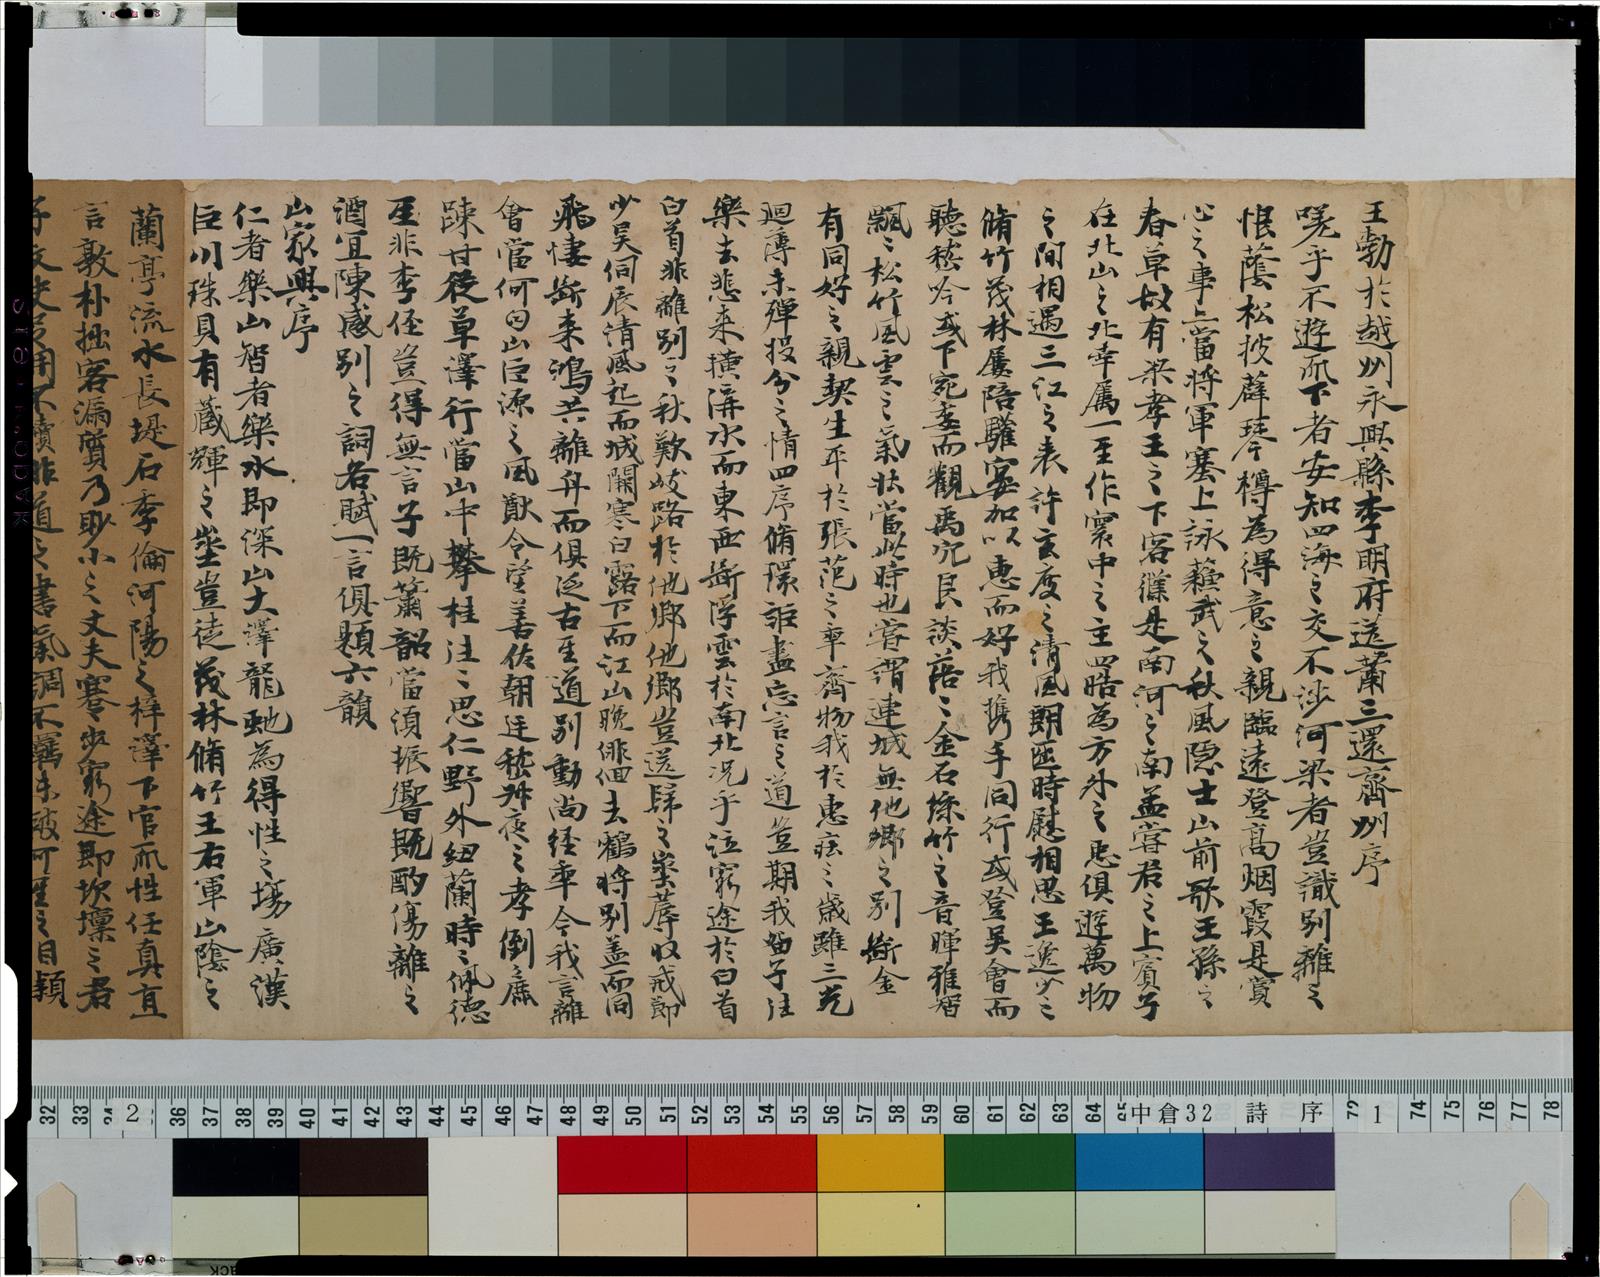 王勃於越州永興縣李明府送蕭三還齊州序
嗟乎不遊天下者安知四海之交不涉河梁者豈識別離之
恨蔭松披薜琴樽為得意之親臨遠登高烟霞是賞
心之事上當將軍塞上詠蘇武之秋風隱士山前歌王孫之
春草故有梁孝王之下客僕是南河之南孟嘗君之上賓子
在北山之北幸屬一至作寰中之主四皓為方外之臣俱遊萬物
之間相遇三江之表許玄度之清風朗匝時慰相思王逸少之
脩竹茂林屢陪驩宴加以惠而好我携手同行或登吴會而
聽越吟或下宛委而觀禹穴良談落々金石絲竹之音暉雅智
飄々松竹風雲之氣狀當此時也嘗謂連城無他鄉之別斷金
有同好之親契生平於張范之年齊物我於惠莊之歲雖三光
廻薄未殫投分之情四序脩環詎盡忘言之道豈期我留子往
樂去悲来橫溝水而東西斷浮雲於南北況乎泣窮途於白首
白首非離別之秋歎歧路於他鄉他鄉豈送歸之處蓐收戒節
少昊伺辰清風起而城闕寒白露下而江山晚徘徊去鶴將別盖而同
飛悽斷来鴻共離舟而俱泛古人道別動尚経年今我言離
會當何日山巨源之風猷令望善佐朝廷嵇叔夜之孝倒麁
踈甘從草澤行當山中攀桂往々思仁野外紐蘭時々佩德
至非李侄豈得無言子既簫韶當須振響既酌傷離之
酒宜陳感別之詞各賦一言俱題六韻
山家興序
仁者樂山智者樂水即深山大澤龍虵為得性之場廣漢
巨川珠貝有藏輝之所豈徒茂林脩竹王右軍山陰之
蘭亭流水長堤石季倫河陽之梓澤下官天性任真直
言敦朴拙容漏質乃眇小之丈夫蹇步窮途即坎壈之君
子文史足用不讀非道之書氣調不羈未被可人之目潁
32 33 34 2 36 37 38 39 40 41 42 43 44 45 46 47 48 49 50 51 52 53 54 55 56 57 58 59 60 61 62 63 64 中倉32 詩 序 72 1 74 75 76 77 78